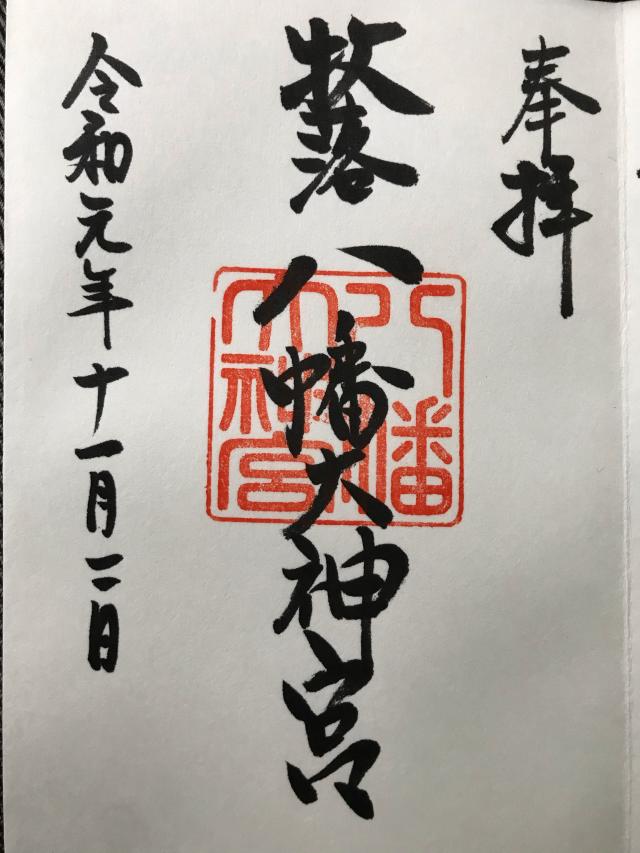 奉拝
牧落八幡大神宮
八幡大神宮
令和元年十一月二日